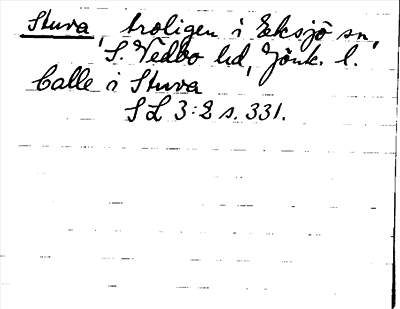 Stuva, troligen i Eksjö sn,
S. Vedbo hd, Jönk. l.
Calle i Stuva
SL 3:2 s. 331.